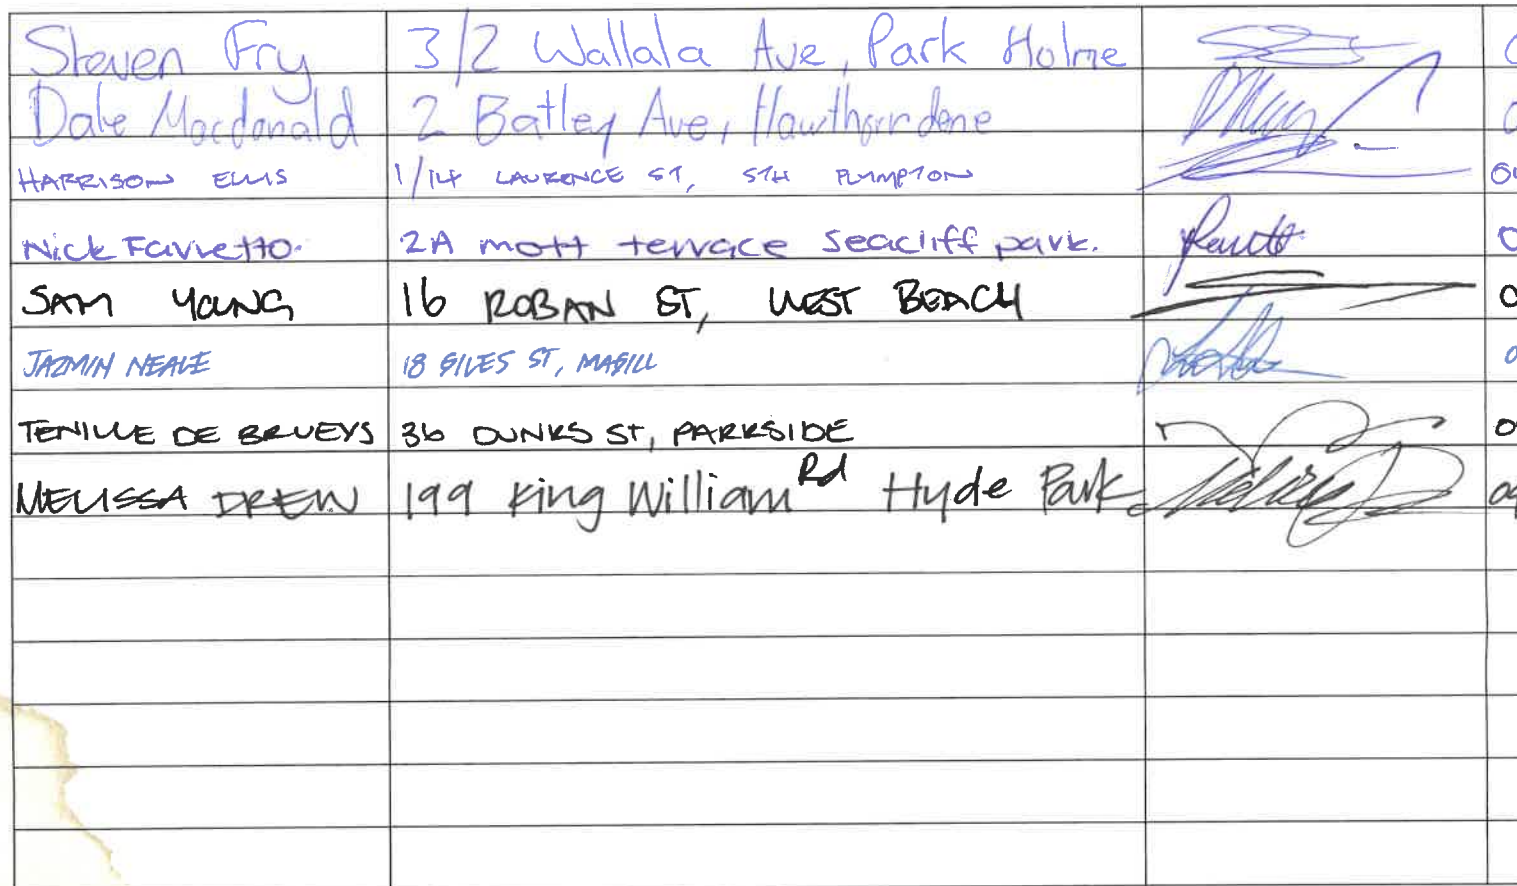 Steven Fry 3/2 Wallala Ave, Park Holme
Dale Macdonald 2 Batley Ave, Hawthorndene
HARRISON ELLIS 1/14 LAURENCE ST, STH PLYMPTON
Nick Favretto. 2A mott terrace seacliff park.
SAM YOUNG 16 ROBAN ST, WEST BEACH
JAZMIN NEALE 18 GILES ST, MAGILL
TENILLE DE BRUEYS 36 DUNKS ST, PARKSIDE
MELISSA DREW 199 King William Rd Hyde Park